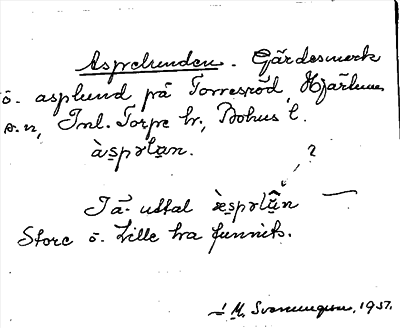 Asprelunden. Gärdesmark
o. asplund på Torresröd, Hjärtums
s:n, Inl. Torpe hr, Bohus l.
àsprlan.
?
Jä. uttal æsprlån
Store o. Lille ha funnits.
M. Svenungsson, 1937.